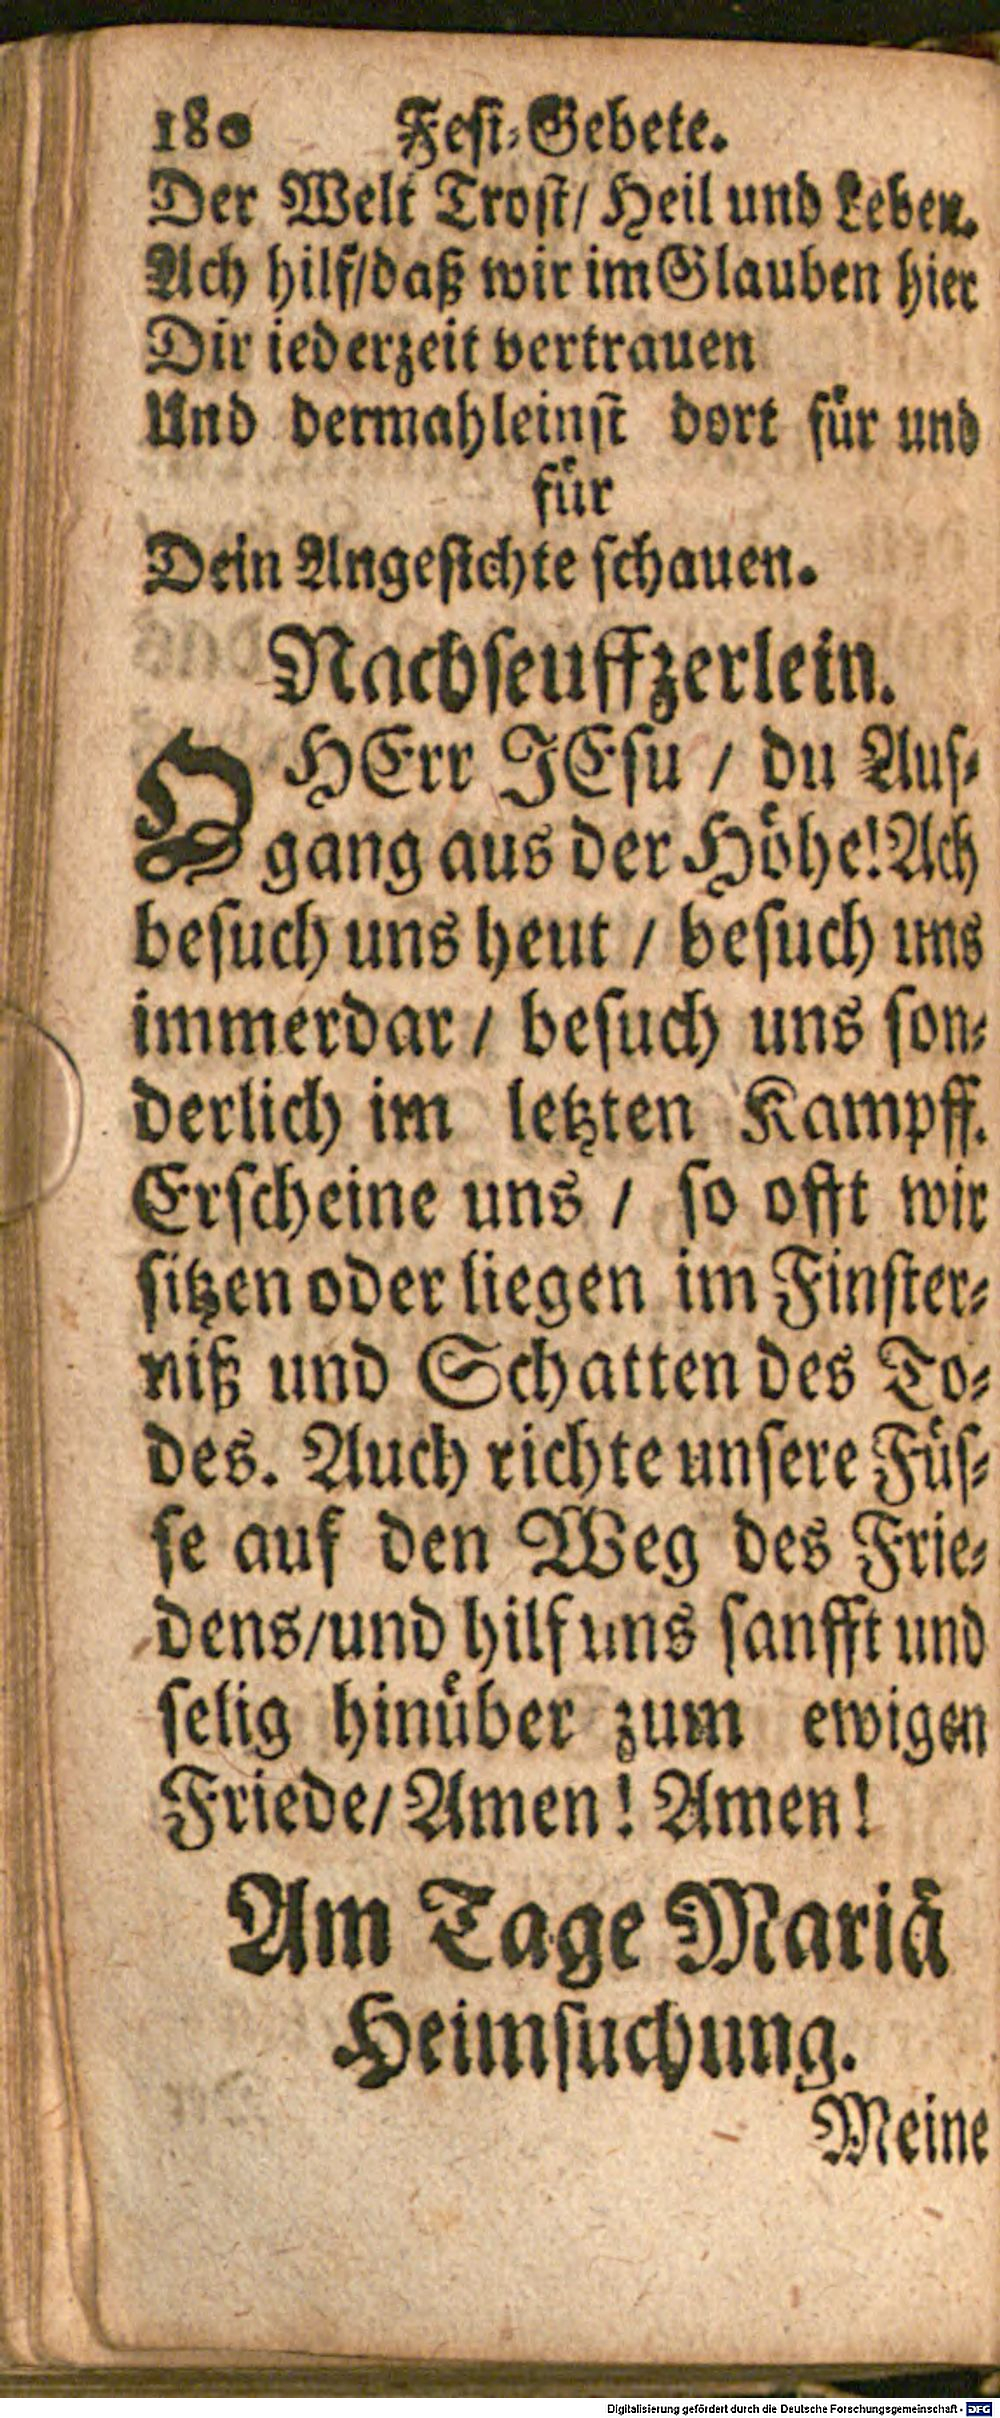 180 Fest-Gebete.
Der Welt Trost/ Heil und Leben.
Ach hilf/daß wir im Glauben hier
Dir iederzeit vertrauen
Und dermahleinst dort für und
für
Dein Angesichte schauen.
Nachseuffzerlein.
O HErr JEsu / du Auf-
gang aus der Höhe! Ach
besuch uns heut / besuch uns
immerdar / besuch uns son-
derlich im letzten Kampff.
Erscheine uns / so offt wir
sitzen oder liegen im Finster-
niß und Schatten des To-
des. Auch richte unsere Füs-
se auf den Weg des Frie-
dens/und hilf uns sanfft und
selig hinüber zum ewigen
Friede/ Amen! Amen!
Am Tage Mariä
Heimsuchung.
Meine
Digitalisierung gefördert durch die Deutsche Forschungsgemeinschaft - DFG